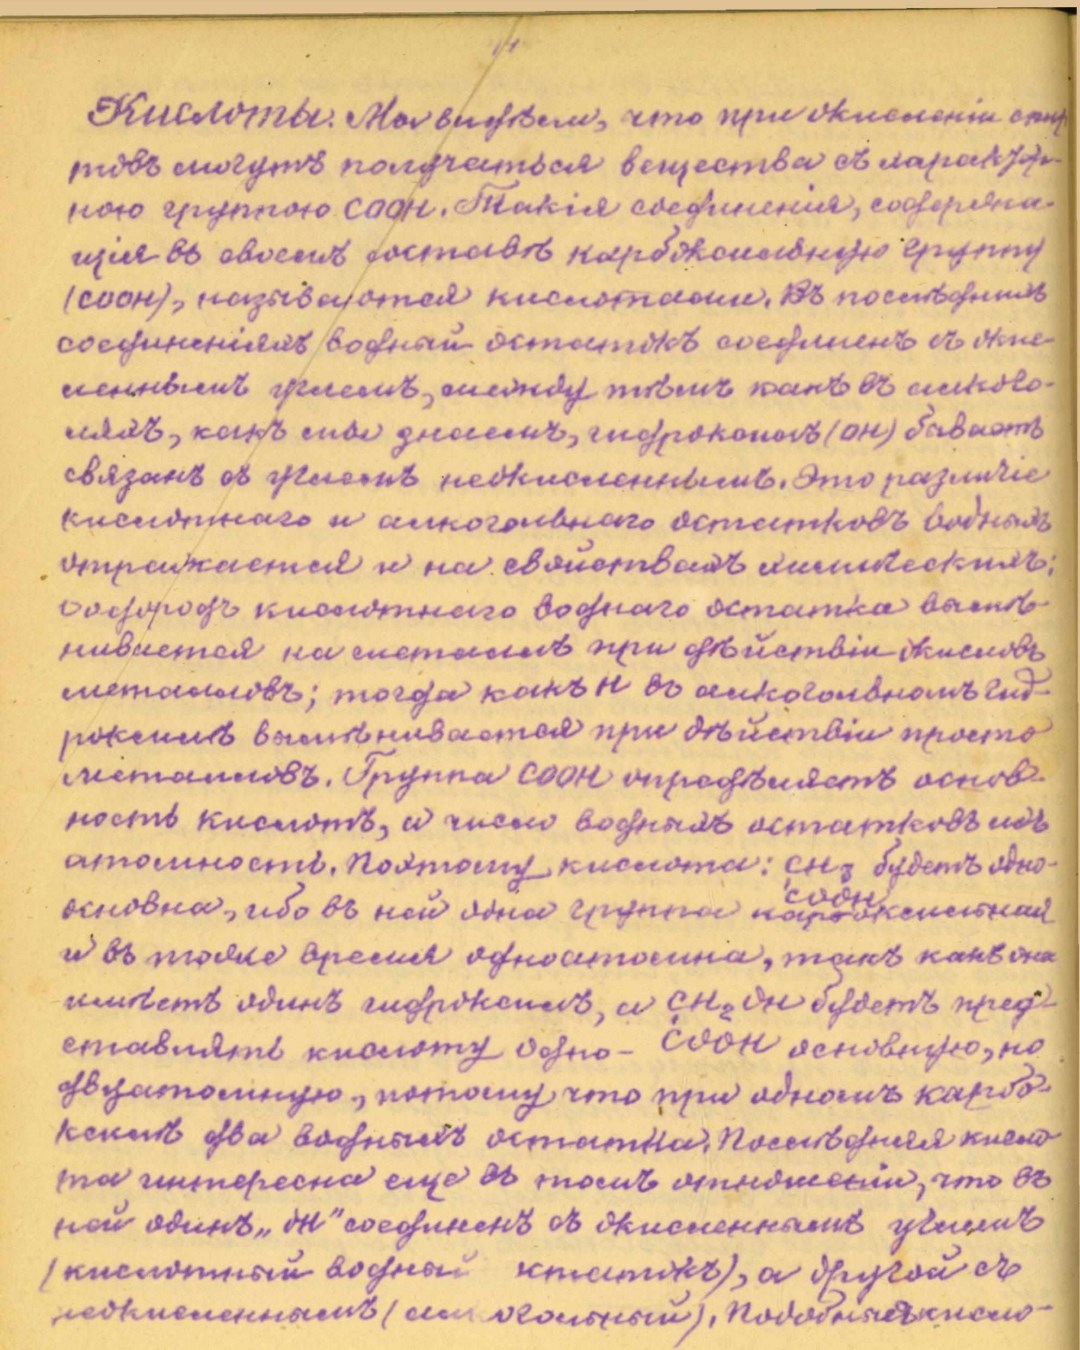 11
Кислоты. Мы видѣли, что при окисленіи спир-
товъ могутъ получаться вещества съ характер-
ною группою COOH. Такія соединенія, содержа-
щія въ своемъ составѣ карбоксильную группу
(COOH), называются кислотами. Въ послѣднихъ
соединеніяхъ водный остатокъ соединенъ съ окис-
леннымъ углемъ, между тѣмъ какъ въ алкого-
ляхъ, какъ мы знаемъ, гидроксилъ (OH) бываетъ
связанъ съ углемъ неокисленнымъ. Это различіе
кислотнаго и алкогольнаго остатковъ водныхъ
отражается и на свойствахъ химическихъ:
водородъ кислотнаго воднаго остатка вымѣ-
нивается на металлъ при дѣйствіи окисловъ
металловъ; тогда какъ H въ алкогольномъ гид-
роксилѣ вымѣнивается при дѣйствіи просто
металловъ. Группа COOH опредѣляетъ основ-
ность кислотъ, а число водныхъ остатковъ ихъ
атомность. Поэтому кислота: CH3 будетъ одно-
COOH
основна, ибо въ ней одна группа карбоксильная
и въ тоже время одноатомна, такъ какъ она
имѣетъ одинъ гидроксилъ, а CH2OH будетъ пред-
ставлять кислоту одно- COOH основную, но
двуатомную, потому что при одномъ карбо-
ксилѣ два водныхъ остатка. Послѣдняя кисло
та интересна еще въ томъ отношеніи, что въ
ней одинъ „OH" соединенъ съ окисленнымъ углемъ
(кислотный водный статокъ), а другой съ
неокисленнымъ (ал огольный). Подобныя кисло-